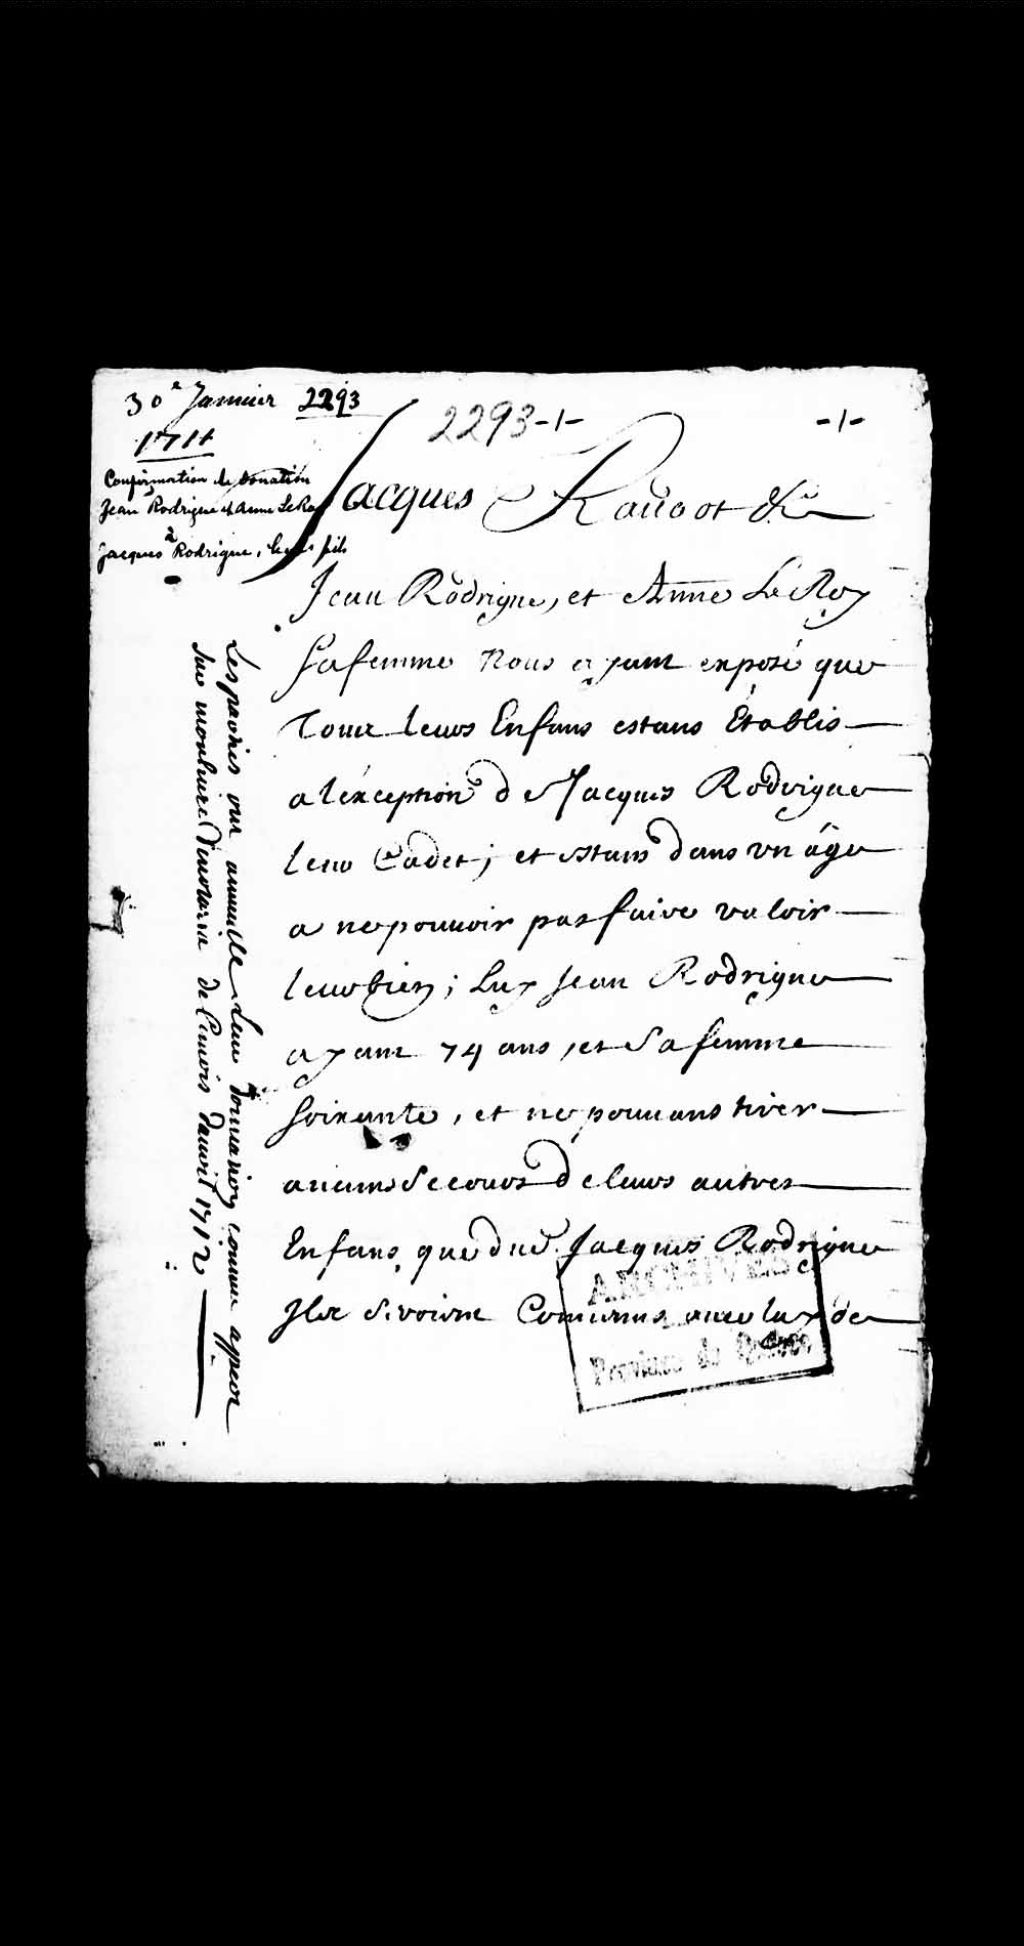 30e Janvier 2293
1711
2293-1-
-1-
Confirmation de donation
Jean Rodrigue et Anne LeRoy
à
Jacques Rodrigue, leur fils
Jacques Raudot &c
Jean Rodrigue, et Anne Le Roy
Sa femme Nous ayant exposé que
Tous leurs Enfans estans Établis
a léxception de Jacques Rodrigue
leur Cadet; et estans dans un âge
a ne pouvoir pas faire valoir
leur bien; Luy Jean Rodrigue
ayant 74 ans, et Sa femme
Soixante, et ne pouvans tirer
aucuns Secours de leurs autres
Enfans que du d. Jacques Rodrigue
Ils Se Comunns avec luy de
Les parties ont annullé Leur donnation comme appert
Sur de d'avril 1712
ARCHIVES
Province de Québec